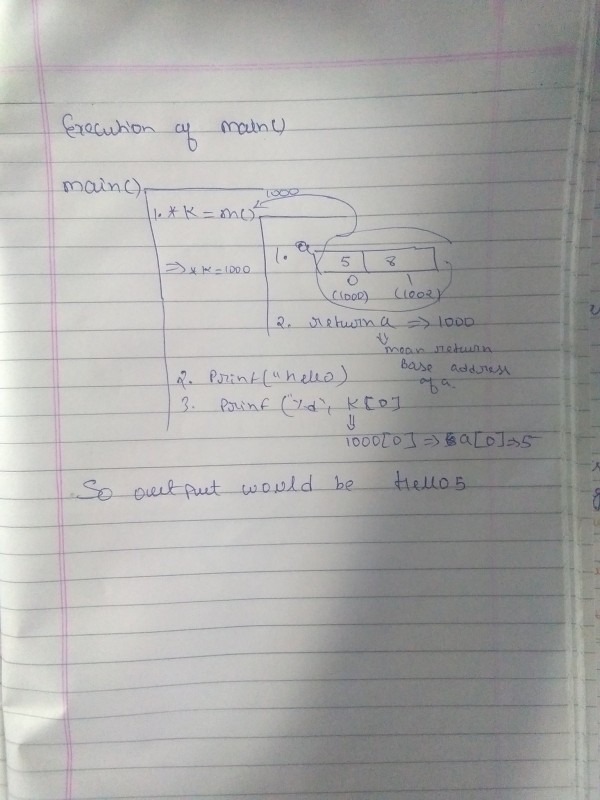 Execution of main()
main()
1000
1. *K = m()
1. a 5 8
⇒ *K = 1000
0 1
(1000) (1002)
2. return a ⇒ 1000
⇓
mean return
Base address
of a.
2. Printf("hello)
3. Printf ("%d", K[0]
⇓
1000[0] ⇒ a[0] ⇒ 5
So output would be Hello5